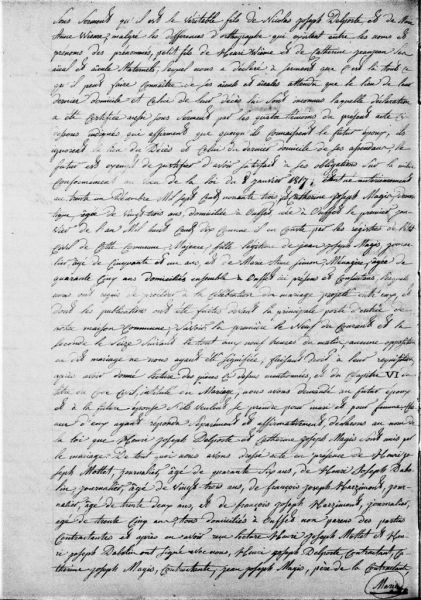 sous serment qu'il est le véritable fils de Nicolas joseph Delporte et de Marie
Anne Wième, malgré les différences d'orthographe qui existent entre les noms et
prénoms des prénommés, petit fils de Henri Wième et de Catherine
aïeul et aieule Maternels, lequel nous a déclaré à serment que c'est là tout ce
qu'il peut faire connaitre de ses aieuls et aieules attendu que le lieu de leur
dernier domicile et celui de leur décès lui sont inconnus laquelle déclaration
a été certifiée aussi sous serment par les quatre témoins du présent acte ci
dessous indiqués qui affirment que quoiqu'ils connaissent le futur époux, ils
ignorent le lieu du Décès et celui du dernier domicile de ses ascendans; le
futur est exempt de justifier d'avoir satisfait à ses obligations sur la milice
Conformément au vœu de la loi du 8 janvier 1817.
au trente un Décembre Mil sept Cent nonante trois, et Catherine joseph Magis,
âgée de vingt trois ans, domiciliée à Oaffet, née à Oaffet le premier
de l'an Mil huit Cent Comme il en Conste par les registres de l'état
Civil de Cette Commune, Majeure, fille légitime de jean joseph Magis,
âgé de Cinquante et un ans, et de Marie Anne Simon Ménagère, âgée de
quarante Cinq ans domiciliés ensemble à Oaffet ici présens et Consentans lesquels
nous ont requis de procéder à la Célébration du mariage projeté entr'eux, et
dont les publications ont été faites devant la principale porte d'entrée de
notre maison Commune; Savoir la première le Neuf du Courant et la
seconde le Seize suivant le tout aux neuf heures du matin, aucune opposition
au dit mariage ne nous ayant été signifiée, faisant droit à leur réquisition
après avoir donné lecture des pièces ci dessus mentionnées et du Chapitre VI du
titre du Code Civil, intitulé du Mariage, nous avons demandé au futur époux
et à la future épouse s'ils veulent se prendre pour mari et pour femme,
d'eux ayant répondu séparément et affirmativement, déclarons au nom de
la loi que Henri joseph Delporte et Catherine joseph Magis sont unis par
le mariage. De tout quoi nous avons dressé acte en présence de Henri
joseph Mottet, journalier, âgé de quarante Six ans, de Henri joseph
journalier, âgé de Vingt trois ans, de françois joseph Harzimont,
journalier, âgé de trente deux ans, et de françois joseph Harzimont, journalier,
âgé de trente Cinq ans, tous domiciliés à Oaffet non parens des parties
Contractantes et après en avoir reçu lecture Henri joseph Mottet et Henri
joseph ont signé avec nous, Henri joseph Delporte, Contractant, Catherine
joseph Magis, Contractante, jean joseph Magis, père de la Contractante
Marie